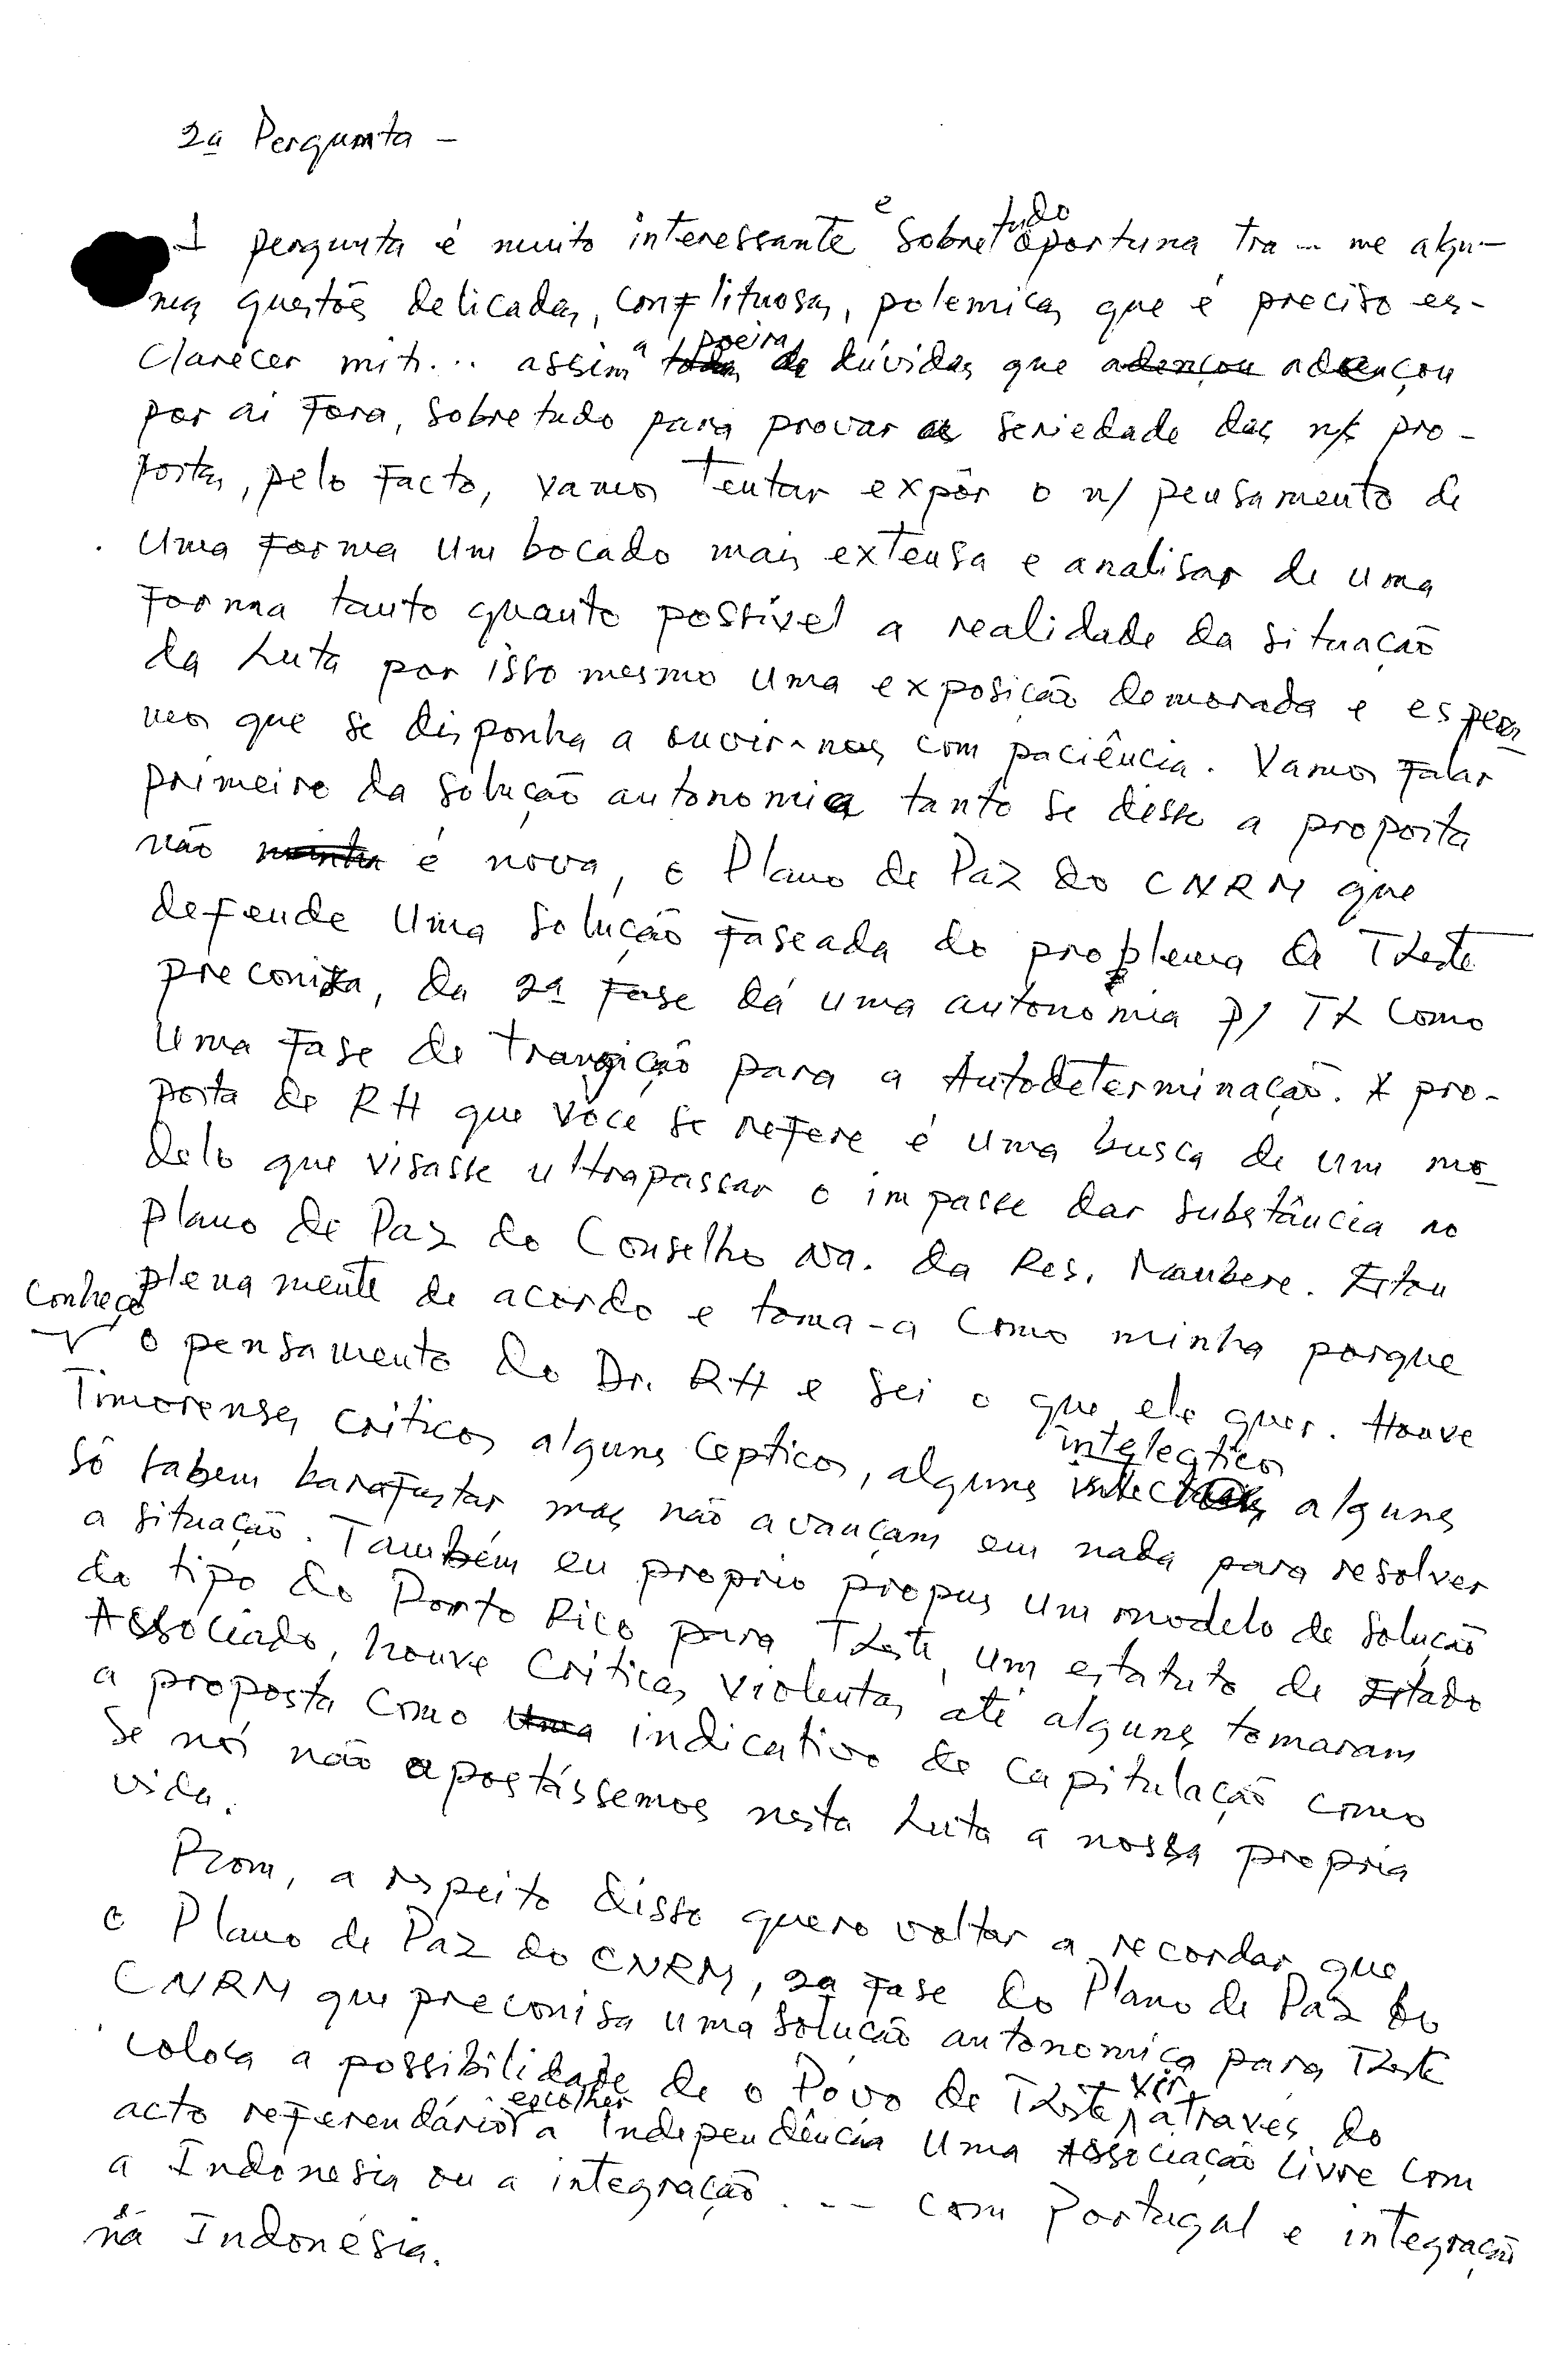 2ª Pergunta -
A pergunta é muito interessante e sobretudo oportuna tra... me algu-
mas questões delicadas, conflituosas, polemicas que é preciso es-
clarecer miti... assim a poeira de dúvidas que adençou adençou
por aí fora, sobretudo para provar a seriedade das n/s pro-
postas, pelo facto, vamos tentar expôr o n/ pensamento de
uma forma um bocado mais extensa e analisar de uma
forma tanto quanto possível a realidade da situação
da Luta por isso mesmo uma exposição demorada e espera
mos que se disponha a ouvir-nos com paciência. Vamos falar
primeiro da solução autonomica tanto se disse a proposta
não minha é nova, o Plano de Paz do CNRM que
defende uma solução faseada do problema de TLeste
preconiza, da 2ª fase dá uma autonomia p/ TL como
uma fase de transição para a Autodeterminação. A pro-
posta de RH que você se refere é uma busca de um mo
delo que visasse ultrapassar o impasse dar substância ao
plano de Paz do Conselho Na. da Res. Maubere. Estou
plenamente de acordo e toma-a como minha porque
Conheço o pensamento do Dr. RH e sei o que ele quer. Houve
Timorenses criticos alguns cepticos, alguns intelecticos alguns
só sabem barafustar mas não avançam em nada para resolver
a situação. Também eu proprio propus um modelo de solução
do tipo do Porto Rico para TLeste, um estatuto de Estado
Associado, houve criticas violentas até alguns tomaram
a proposta como uma indicativo de capitulação como
se nós não apostássemos nesta Luta a nossa propria
vida.
Bom, a respeito disso quero voltar a recordar que
o Plano de Paz do CNRM, 2ª fase do Plano de Paz do
CNRM que preconisa uma solução autonomica para TLeste
coloca a possibilidade de o Povo de TLeste vir, através do
acto referendário escolher a Independência uma Associação livre com
a Indonesia ou a integração ... com Portugal e integração
na Indonésia.